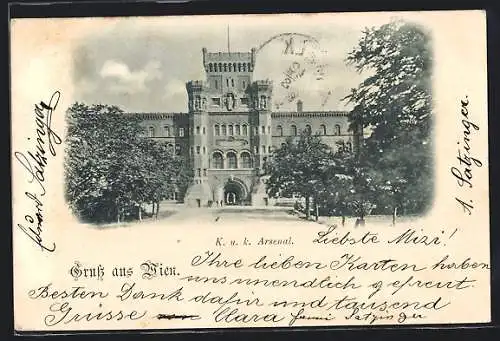 K. u. k. Arsenal.
Gruß aus Wien.
Liebste Mizi!
Ihre lieben Karten haben
uns unendlich gefreut.
Besten Dank dafür und tausend
Grüsse Clara
Satzinger
Eduard Satzinger
A. Satzinger.